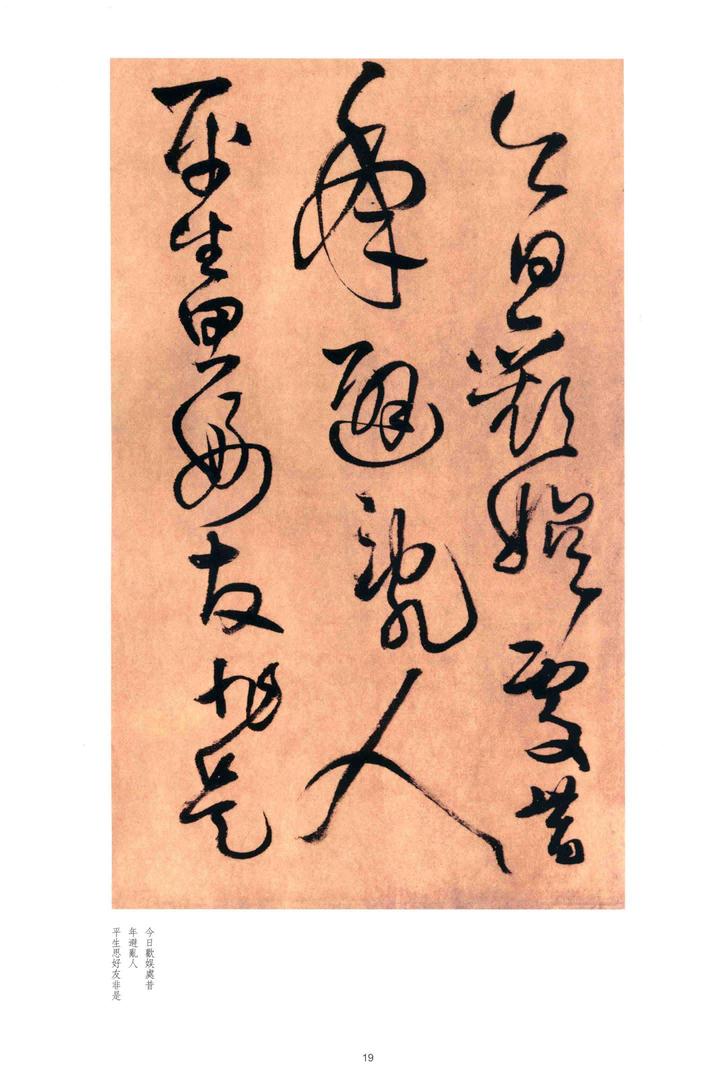 今日歡娛處昔
年避亂人
平生思好友非是
今日歡娛處昔
年避亂人
平生思好友非是
19